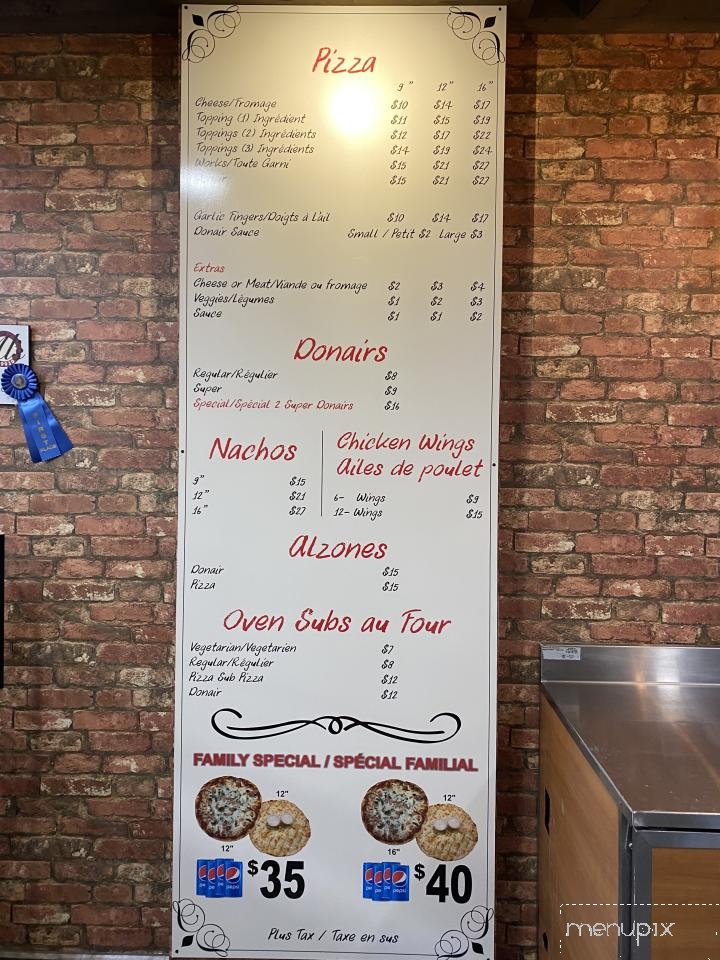 Pizza
9" 12" 16"
Cheese/Fromage $10 $14 $17
Topping (1) Ingrédient $11 $15 $19
Toppings (2) Ingrédients $12 $17 $22
Toppings (3) Ingrédients $14 $19 $24
Works/Toute Garni $15 $21 $27
$15 $21 $27
Garlic Fingers/Doigts à L'ail $10 $14 $17
Donair Sauce Small / Petit $2 Large $3
Extras
Cheese or Meat/Viande ou fromage $2 $3 $4
Veggies/Légumes $1 $2 $3
Sauce $1 $1 $2
Donairs
Regular/Régulier $8
Super $9
Special/Spécial 2 Super Donairs $16
Nachos
9" $15
12" $21
16" $27
Chicken Wings
Ailes de poulet
6- Wings $9
12- Wings $15
Alzones
Donair $15
Pizza $15
Oven Subs au Four
Vegetarian/Vegetarien $7
Regular/Régulier $8
Pizza Sub Pizza $12
Donair $12
FAMILY SPECIAL / SPÉCIAL FAMILIAL
12" 12"
12" 16"
pepsi pepsi
$35 $40
Plus Tax / Taxe en sus
menupix